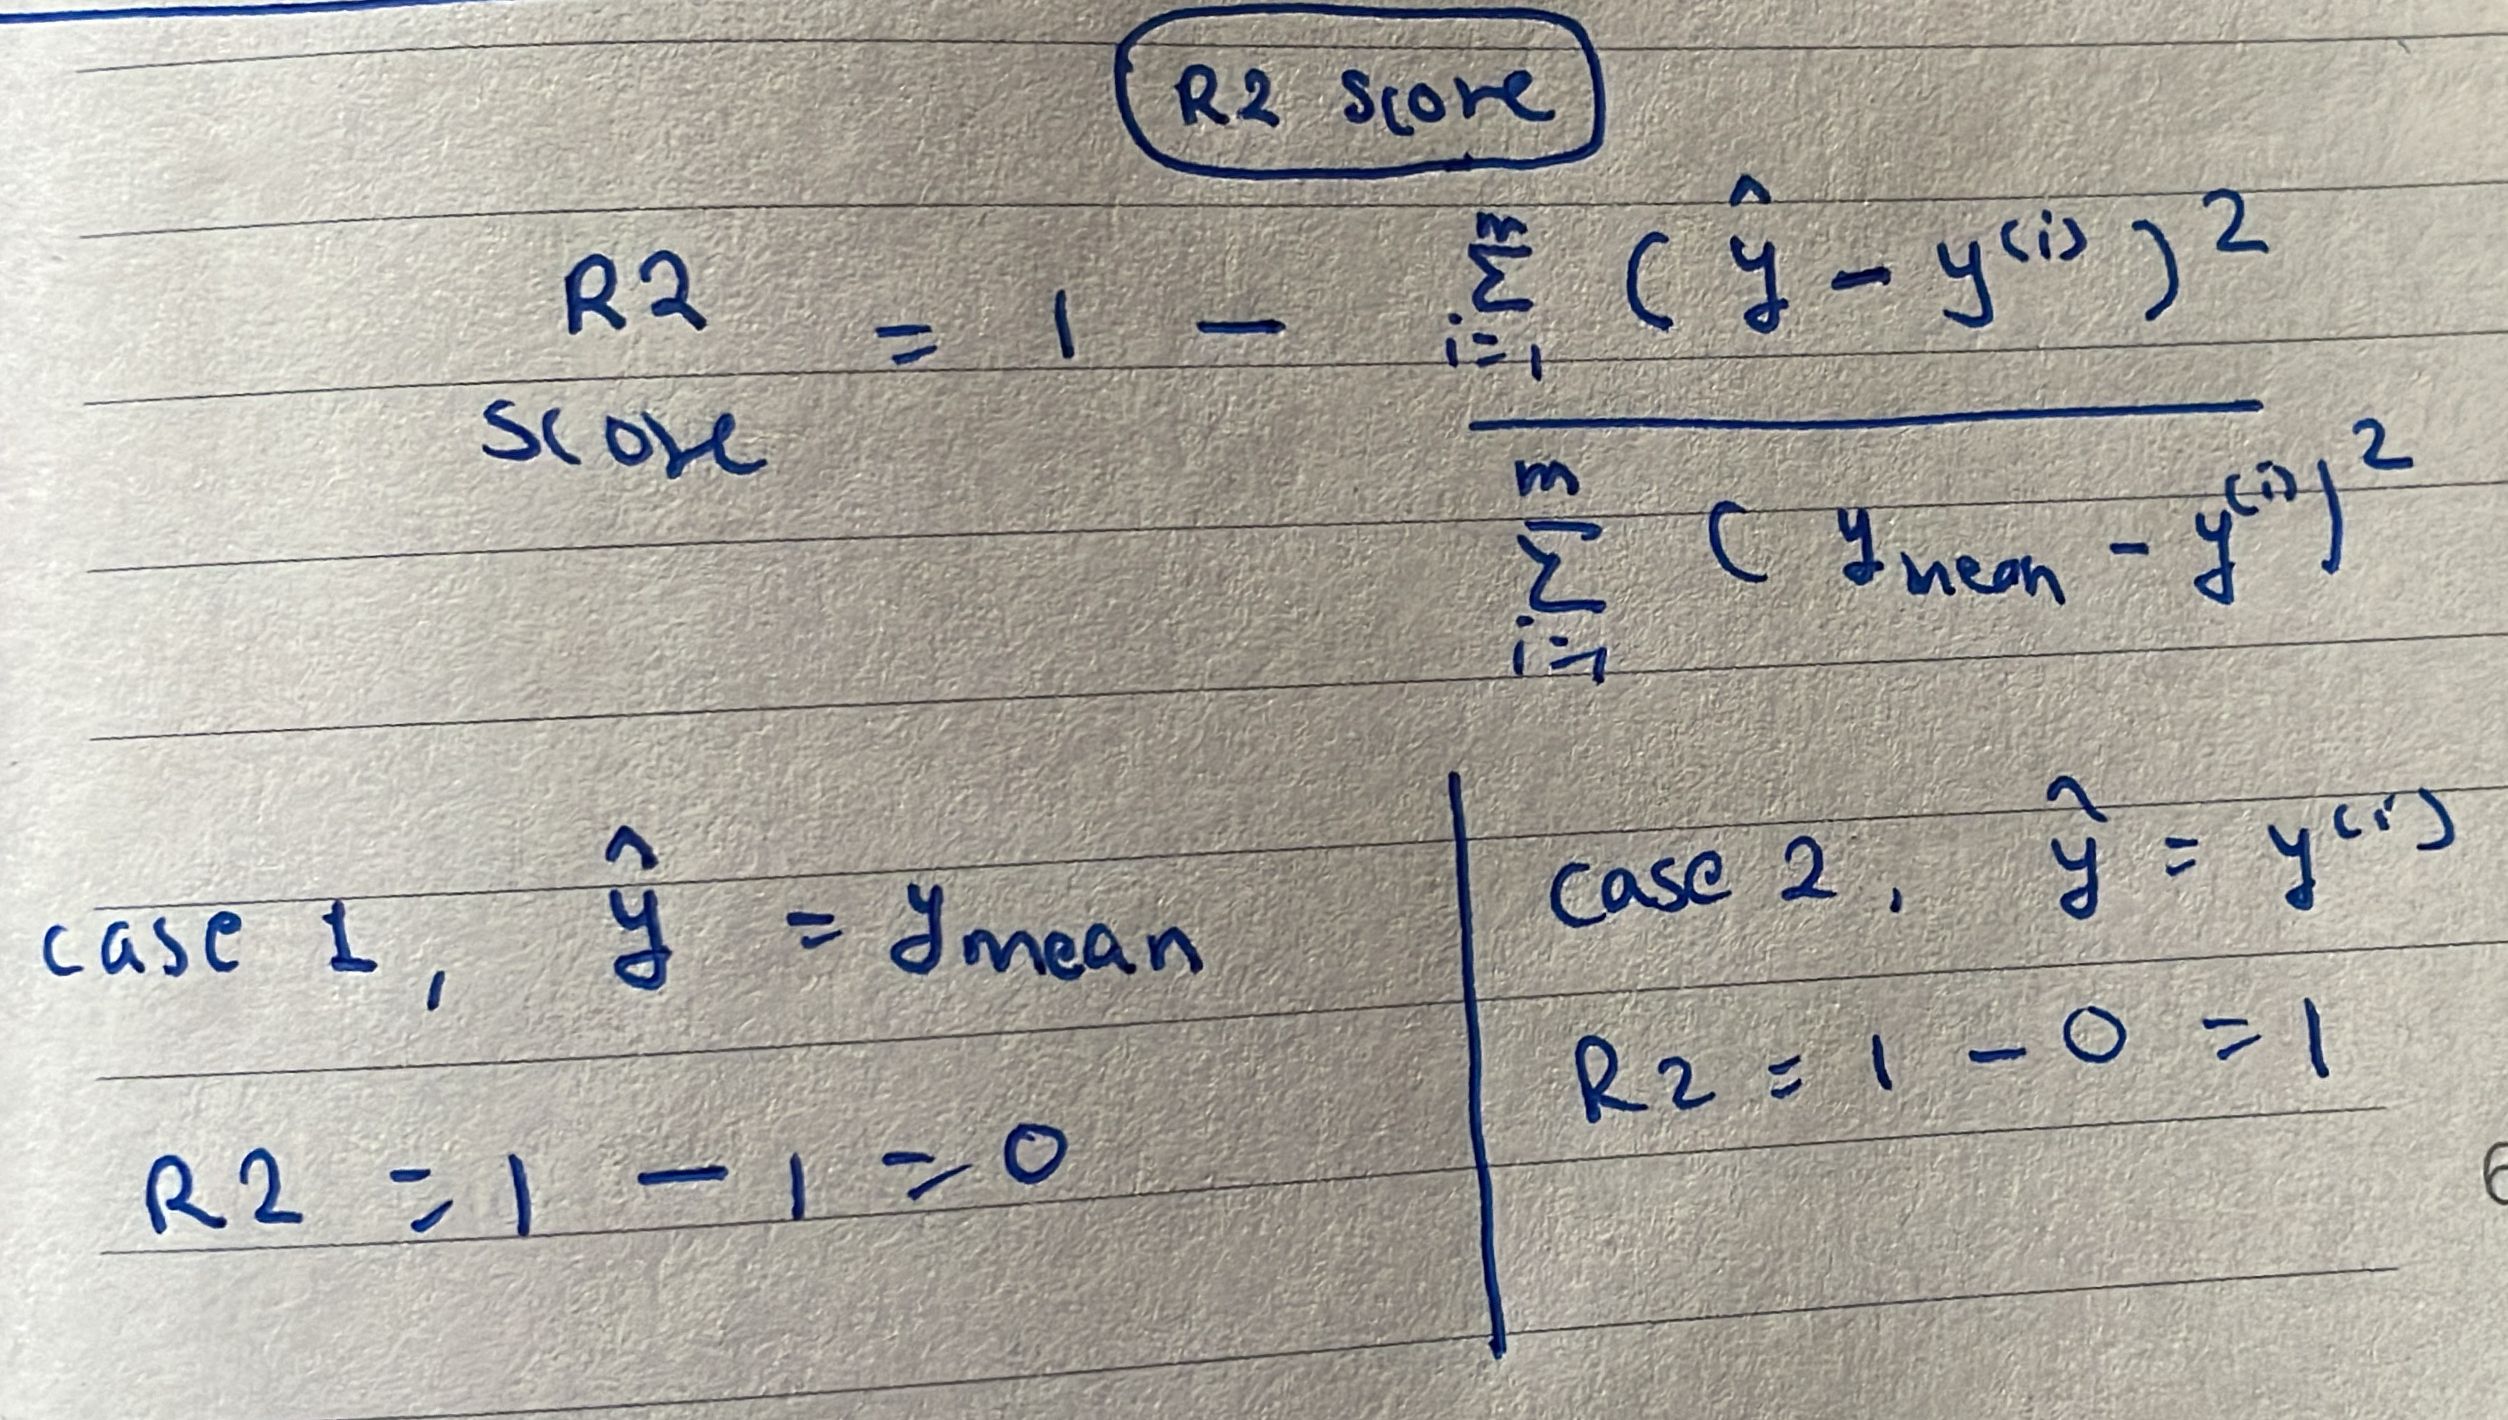 R2 Score
R2 Score = 1 - \frac{\sum_{i=1}^{m} (\hat{y} - y^{(i)})^2}{\sum_{i=1}^{m} (y_{mean} - y^{(i)})^2}
case 1, \hat{y} = y_{mean}
R2 = 1 - 1 = 0
case 2, \hat{y} = y^{(i)}
R2 = 1 - 0 = 1